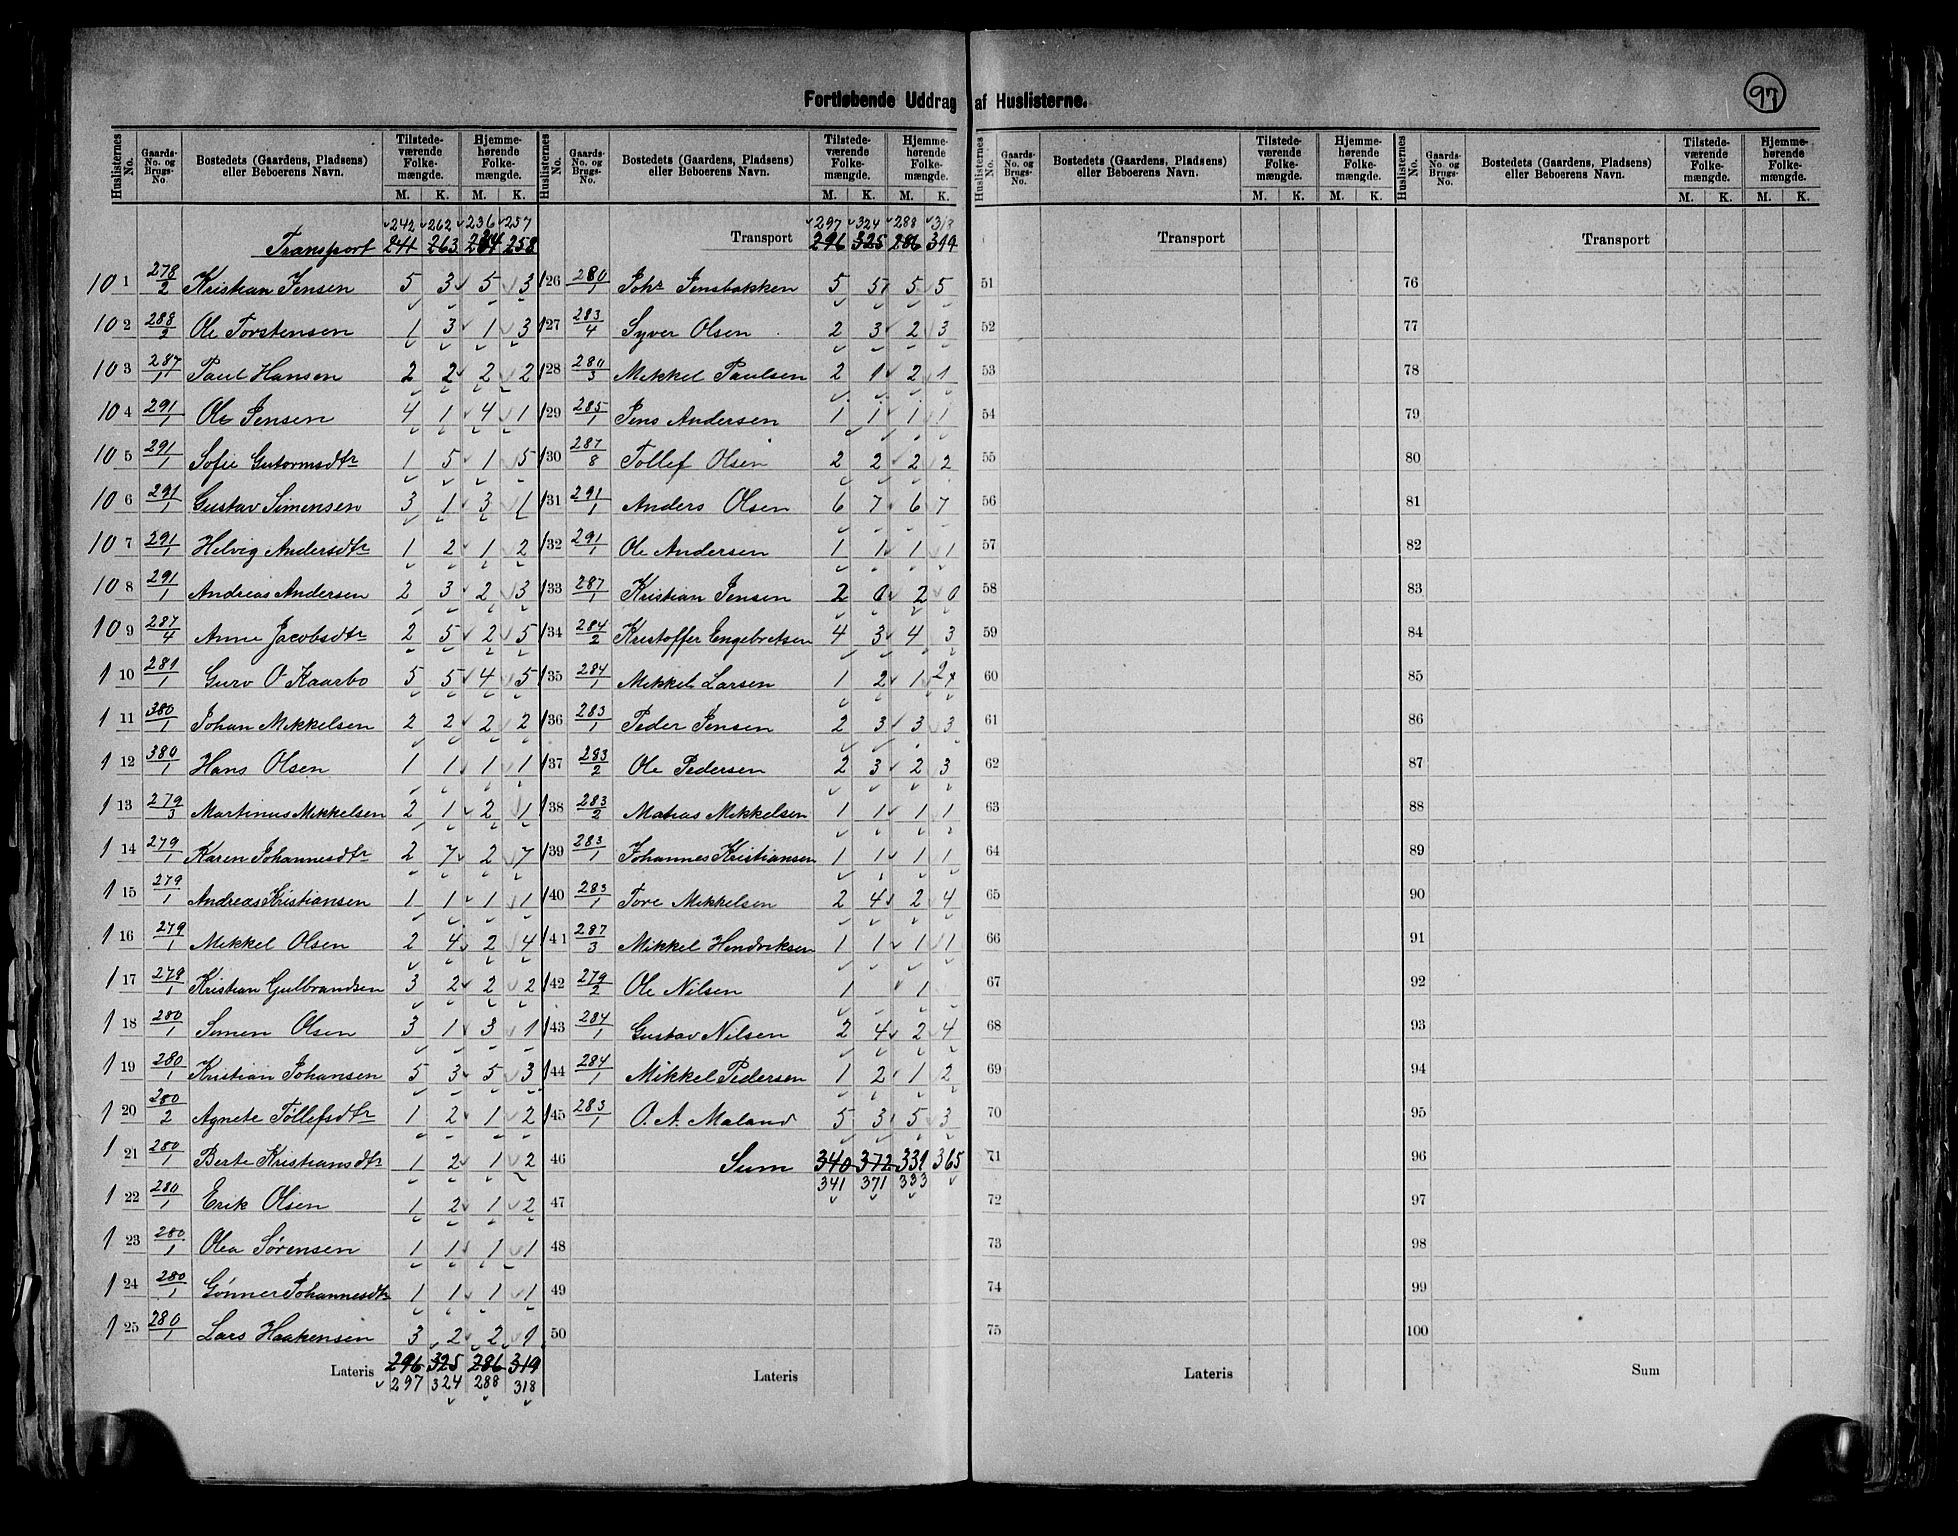 97
Fortløbende Uddrag af Huslisterne.
Huslisternes No. Gaards-No. og Brugs-No. Bostedets (Gaardens, Pladsen) eller Beboerens Navn. Tilstedeværende Folkemængde. M. K. Hjemmehørende Folkemængde. M. K.
242 262 236 257
Transport 241 263 234 258
101 278/2 Kristian Jensen 5 3 5 3
102 288/2 Ole Torstensen 1 3 1 3
103 287/1 Paul Hansen 2 2 2 2
104 291/1 Ole Jensen 4 1 4 1
105 291/1 Sofie Gutormsdtr 1 5 1 5
106 291/1 Gustav Simensen 3 1 3 1
107 291/1 Helvig Andersdtr 1 2 1 2
108 291/1 Andreas Andersen 2 3 2 3
109 287/4 Anne Jacobsdtr 2 5 2 5
110 281/1 Guro O Kaarbo 5 5 4 5
111 380/1 Johan Mikkelsen 2 2 2 2
112 380/1 Hans Olsen 1 1 1 1
113 279/3 Martinus Mikkelsen 2 1 2 1
114 279/1 Karen Johannesdtr 2 7 2 7
115 279/1 Andreas Kristiansen 1 1 1 1
116 279/1 Mikkel Olsen 2 4 2 4
117 279/1 Kristian Gulbrandsen 3 2 2 2
118 280/1 Simen Olsen 3 1 3 1
119 280/1 Kristian Johansen 5 3 5 3
120 280/2 Agnete Tollefsdtr 1 2 1 2
121 280/1 Berte Kristiansdtr 1 2 1 2
122 280/1 Erik Olsen 1 2 1 2
123 280/1 Olea Sørensen 1 1 1 1
124 280/1 Gønner Johannesdtr 1 1 1 1
125 280/1 Lars Haakensen 3 2 2 1
Lateris 296 325 286 319
297 324 288 318
Huslisternes No. Gaards-No. og Brugs-No. Bostedets (Gaardens, Pladsen) eller Beboerens Navn. Tilstedeværende Folkemængde. M. K. Hjemmehørende Folkemængde. M. K.
297 324 288 318
Transport 296 325 286 319
126 280/1 Johs Jensbakken 5 5 5 5
127 283/4 Syver Olsen 2 3 2 3
128 280/3 Mikkel Paulsen 2 1 2 1
129 285/1 Jens Andersen 1 1 1 1
130 287/8 Tollef Olsen 2 2 2 2
131 291/1 Anders Olsen 6 7 6 7
132 291/1 Ole Andersen 1 1 1 1
133 287/1 Kristian Jensen 2 0 2 0
134 284/2 Kristoffer Engebretsen 4 3 4 3
135 284/1 Mikkel Larsen 1 2 1 2
136 283/1 Peder Jensen 2 3 3 3
137 283/2 Ole Pedersen 2 3 2 3
138 283/2 Matias Mikkelsen 1 1 1 1
139 283/1 Johannes Kristiansen 1 1 1 1
140 283/1 Tore Mikkelsen 2 4 2 4
141 287/3 Mikkel Hendriksen 1 1 1 1
142 279/2 Ole Nilsen 1 1
143 284/1 Gustav Nilsen 2 4 2 4
144 284/1 Mikkel Pedersen 1 2 1 2
145 283/1 O. A. Maland 5 3 5 3
46 Sum 340 372 331 365
341 371 333
47
48
49
50
Lateris
Huslisternes No. Gaards-No. og Brugs-No. Bostedets (Gaardens, Pladsen) eller Beboerens Navn. Tilstedeværende Folkemængde. M. K. Hjemmehørende Folkemængde. M. K.
Transport
51
52
53
54
55
56
57
58
59
60
61
62
63
64
65
66
67
68
69
70
71
72
73
74
75
Lateris
Huslisternes No. Gaards-No. og Brugs-No. Bostedets (Gaardens, Pladsen) eller Beboerens Navn. Tilstedeværende Folkemængde. M. K. Hjemmehørende Folkemængde. M. K.
Transport
76
77
78
79
80
81
82
83
84
85
86
87
88
89
90
91
92
93
94
95
96
97
98
99
100
Sum